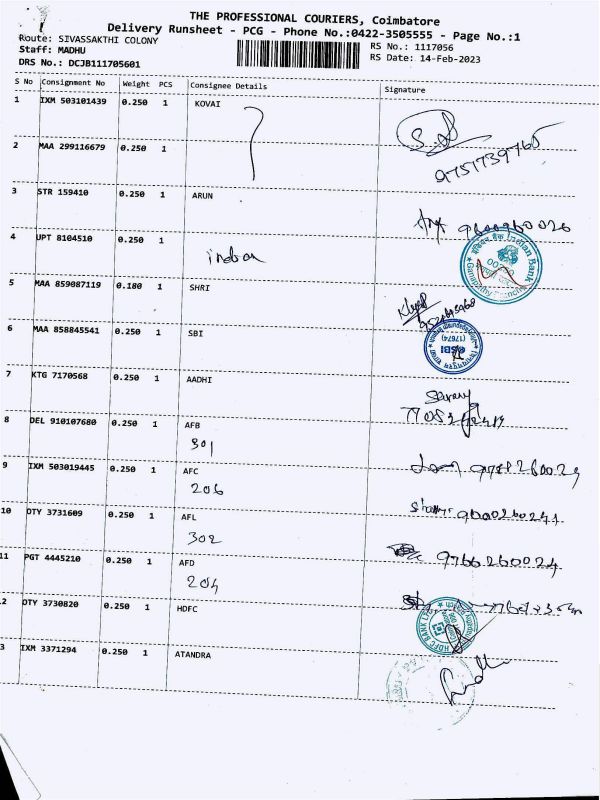 THE PROFESSIONAL COURIERS, Coimbatore
Delivery Runsheet - PCG - Phone No.:0422-3505555 - Page No.:1
Route: SIVASSAKTHI COLONY
Staff: MADHU
DRS No.: DCJB111705601
RS No.: 1117056
RS Date: 14-Feb-2023
S No Consignment No Weight PCS Consignee Details Signature
1 IXM 503101439 0.250 1 KOVAI
9751739765
2 MAA 299116679 0.250 1
3 STR 159410 0.250 1 ARUN
9600960026
4 UPT 8104510 0.250 1
indian
इंडियन बैंक Indian Bank
5 MAA 859087119 0.180 1 SHRI
6 MAA 858845541 0.250 1 SBI
SBI
(17674)
7 KTG 7170568 0.250 1 AADHI
8 DEL 910107680 0.250 1 AFB
301
9 IXM 503019445 0.250 1 AFC
206
10 OTY 3731609 0.250 1 AFL
302
11 PGT 4445210 0.250 1 AFD
9766260024
204
2 OTY 3730820 0.250 1 HDFC
HDFC BANK LTD
3 IXM 3371294 0.250 1 ATANDRA